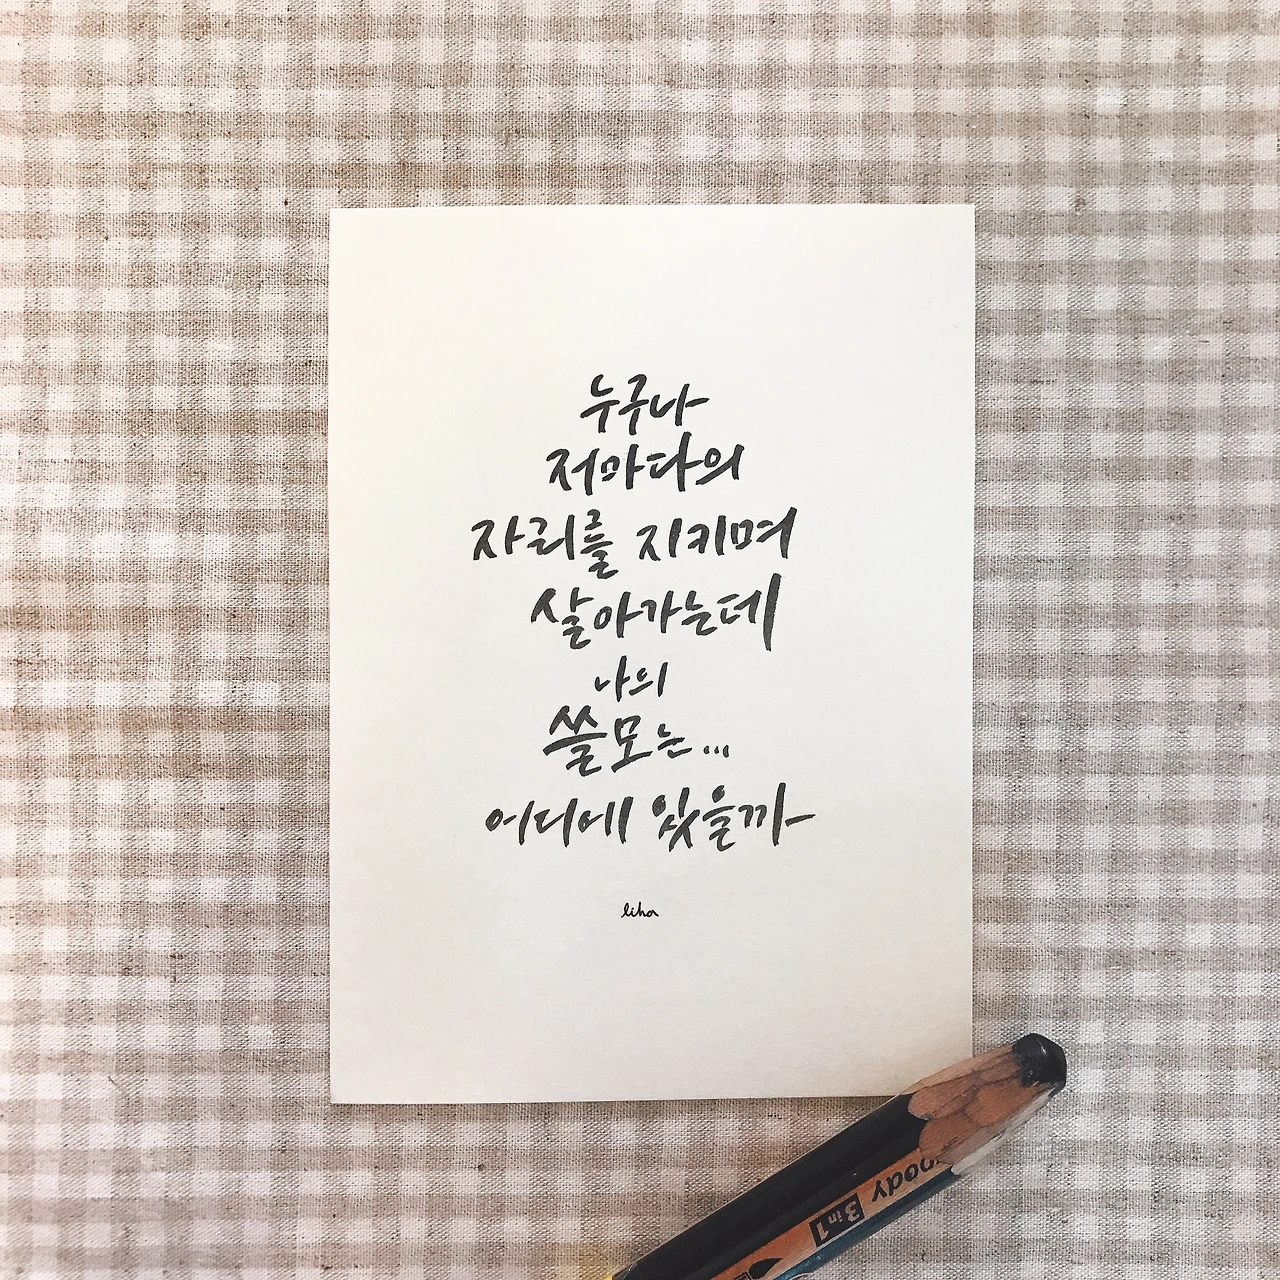 누구나
저마다의
자리를 지키며
살아가는데
나의
쓸모는...
어디에 있을까
liha
woody
3 in 1